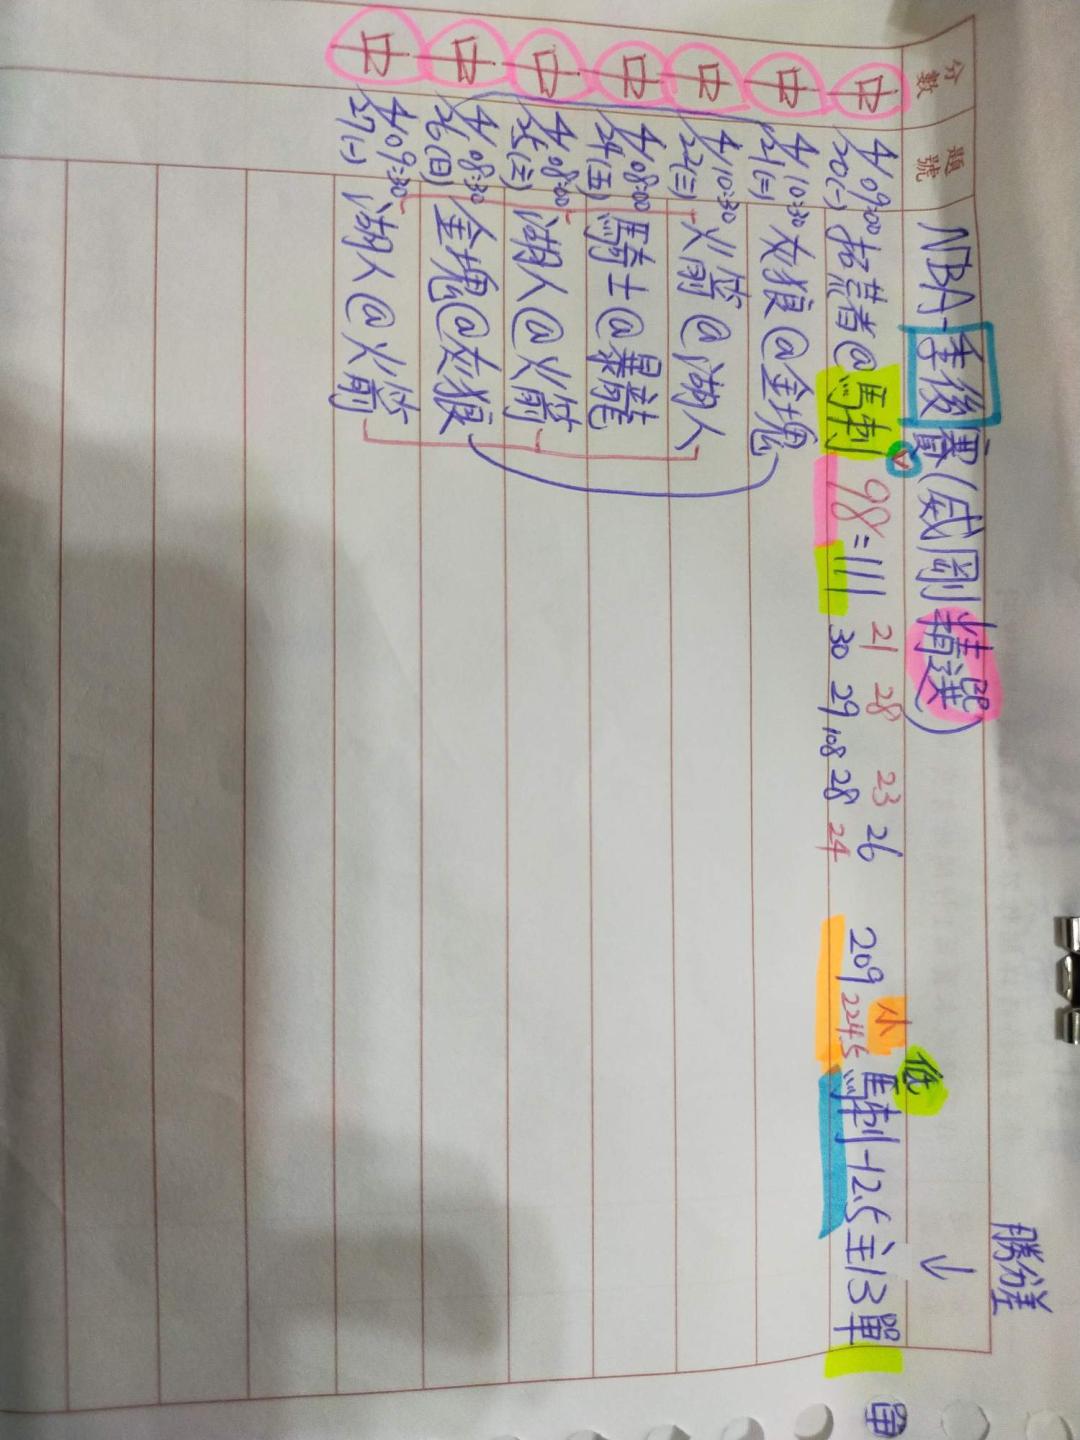 勝分差
NBA-季後賽(威剛精選) 低 ↓
分數 題號
中 4/20(一) 09:00 拓荒者@馬刺 V 98=111 21 28 23 26 30 29 108 28 24 209 小 224.5 馬刺-12.5 主13單 單
中 4/21(二) 10:30 灰狼@金塊
中 4/22(三) 10:30 火箭@湖人
中 4/24(五) 08:00 騎士@暴龍
中 4/25(六) 08:00 湖人@火箭
中 4/26(日) 08:30 金塊@灰狼
中 4/27(一) 09:30 湖人@火箭